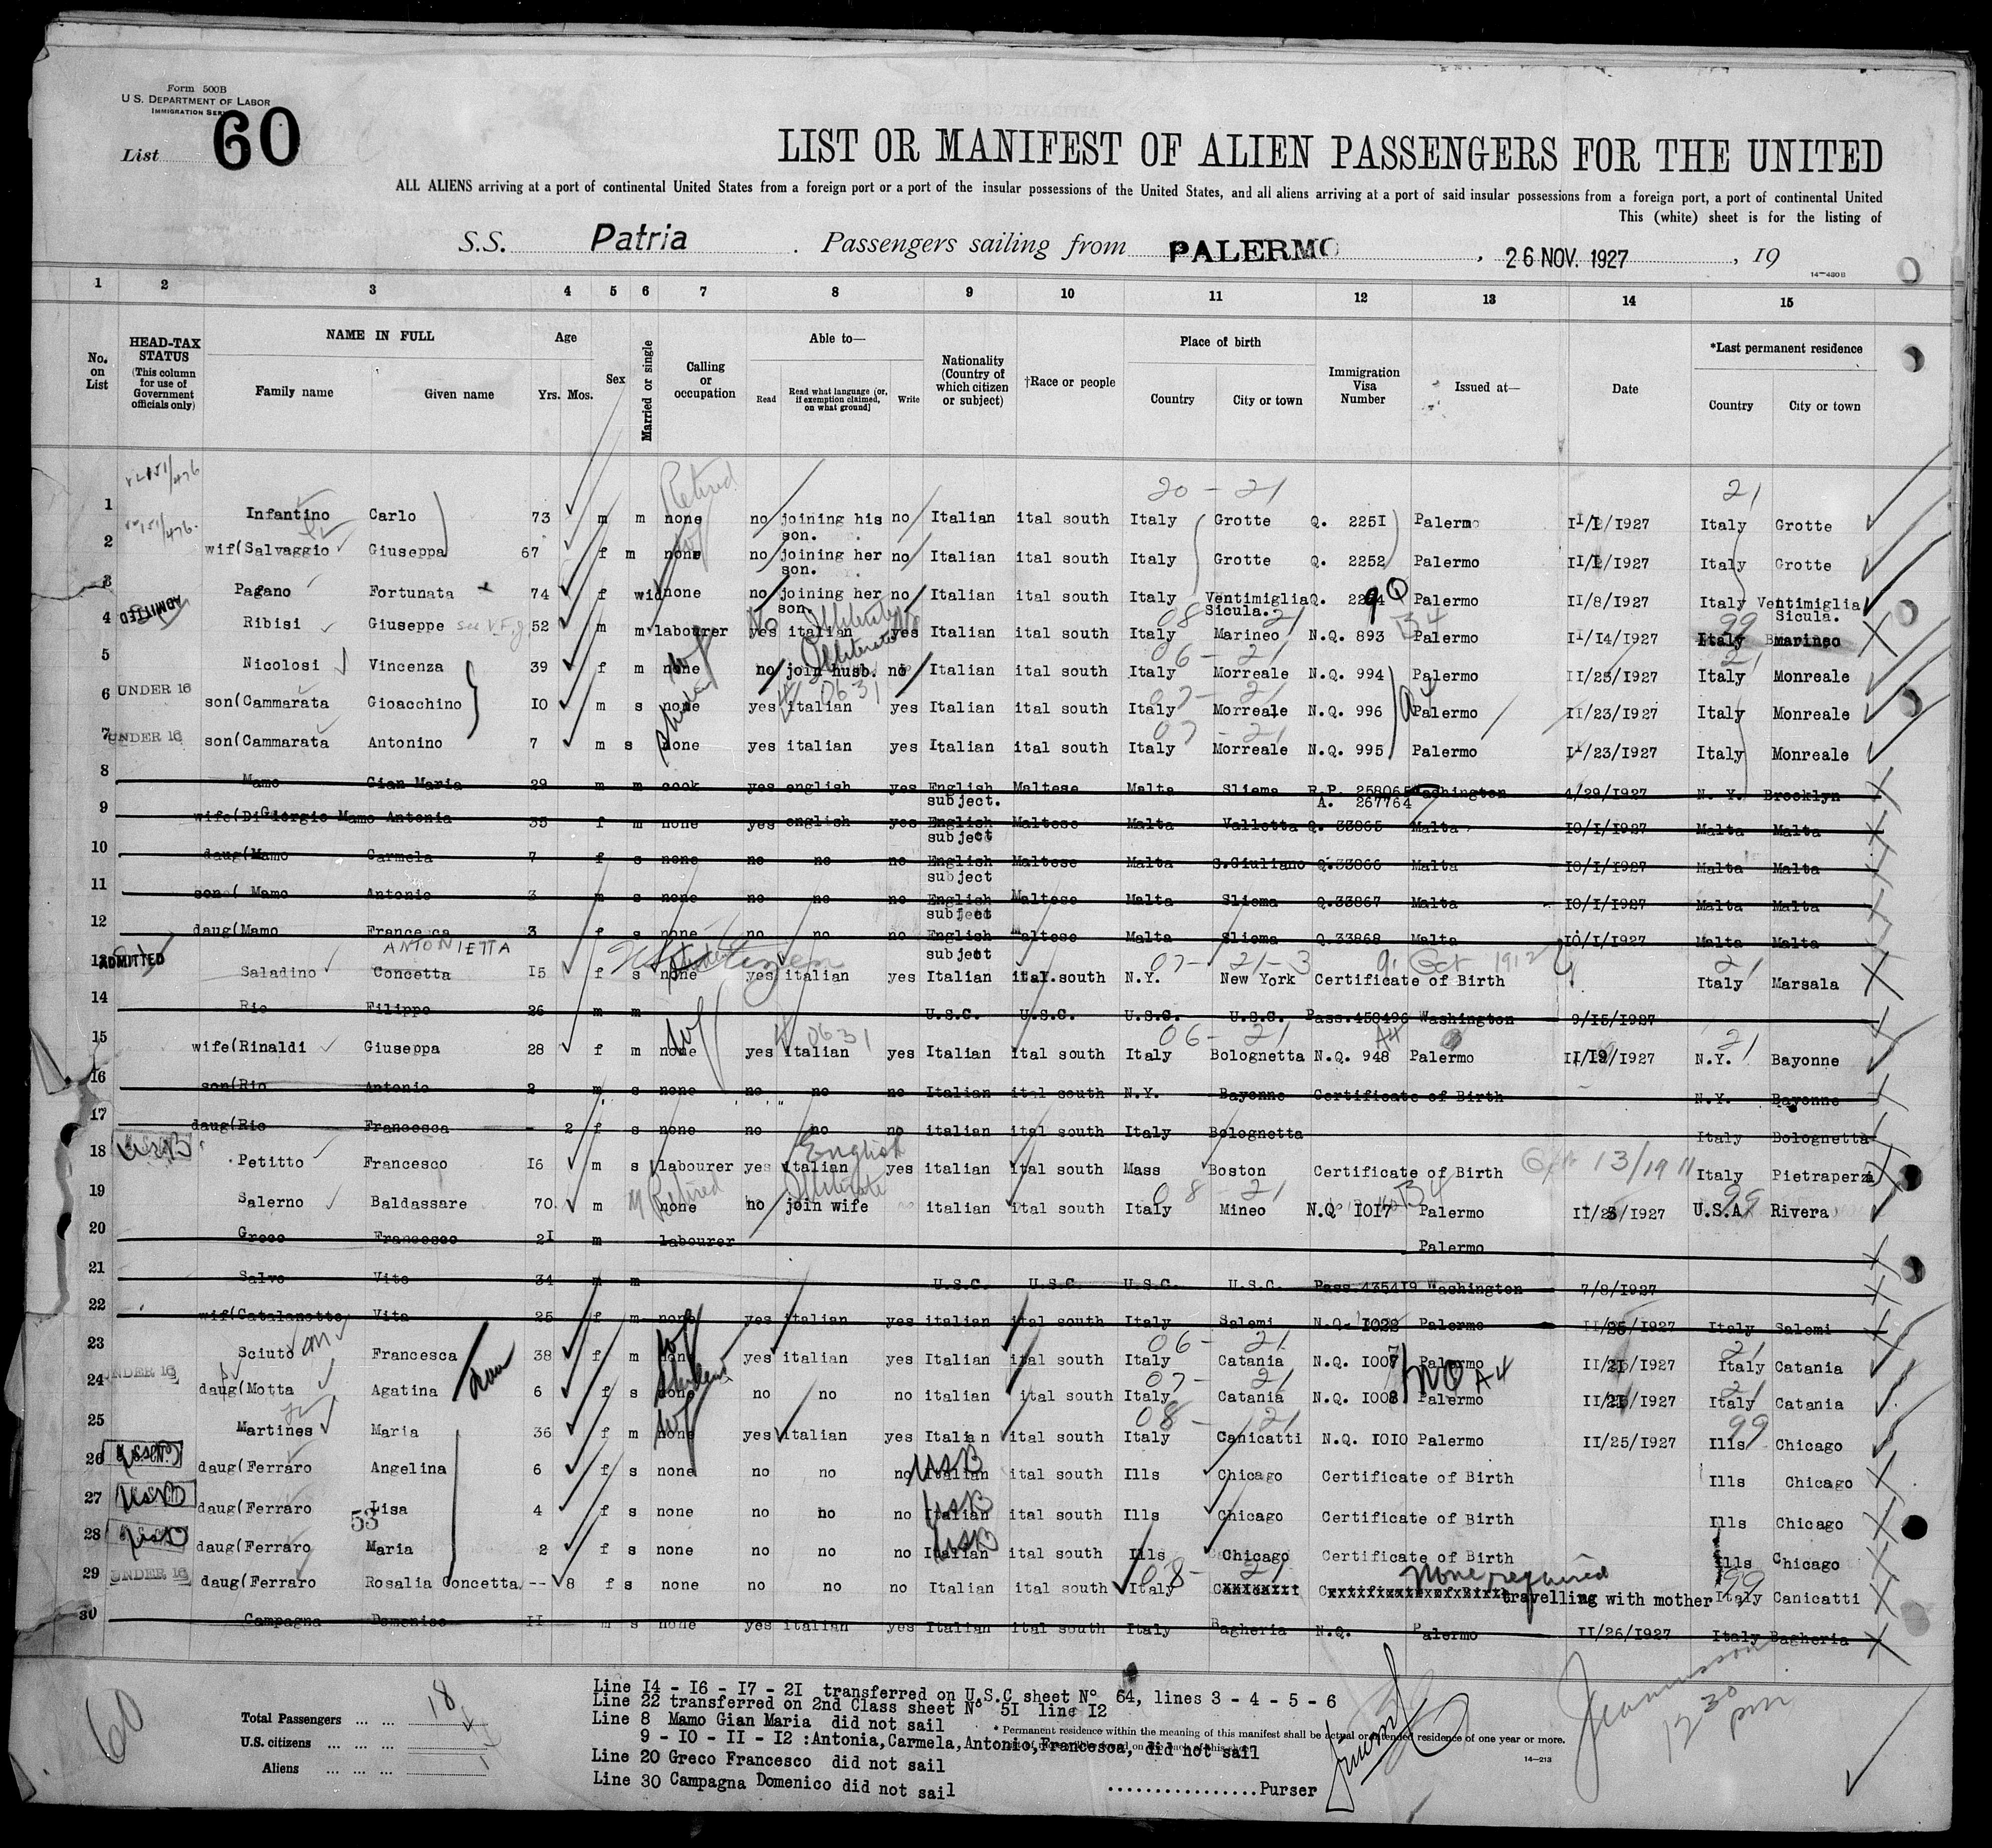 Form 500B
U.S. DEPARTMENT OF LABOR
IMMIGRATION
List 60
LIST OR MANIFEST OF ALIEN PASSENGERS FOR THE UNITED
ALL ALIENS arriving at a port of continental United States from a foreign port or a port of the insular possessions of the United States, and all aliens arriving at a port of said insular possessions from a foreign port, a port of continental United
This (white) sheet is for the listing of
S.S. Patria . Passengers sailing from PALERMO , 26 NOV. 1927 , 19
14-430B
1 2 3 4 5 6 7 8 9 10 11 12 13 14 15
No. on List
HEAD-TAX STATUS (This column for use of Government officials only)
NAME IN FULL
Family name Given name
Age
Yrs. Mos.
Sex
Married or single
Calling or occupation
Able to—
Read Read what language (or, if exemption claimed, on what ground) Write
Nationality (Country of which citizen or subject)
†Race or people
Place of birth
Country City or town
Immigration Visa Number
Issued at—
Date
*Last permanent residence
Country City or town
Retired 20 - 21 21
1 Infantino Carlo 73 m m none no joining his son. no Italian ital south Italy Grotte Q. 2251 Palermo 11/1/1927 Italy Grotte
2 wif(Salvaggio Giuseppa 67 f m none no joining her son. no Italian ital south Italy Grotte Q. 2252 Palermo 11/1/1927 Italy Grotte
3 Pagano Fortunata 74 f wid none no joining her son. no Italian ital south Italy Ventimiglia Sicula. Q. Palermo 11/8/1927 Italy Ventimiglia Sicula.
ADMITTED No Illiterate No 08 - 21 99
4 Ribisi Giuseppe 52 m m labourer yes italian yes Italian ital south Italy Marineo N.Q. 893 Palermo 11/14/1927 Italy
Illiterate 06 - 21 21
5 Nicolosi Vincenza 39 f m none no join husb. no Italian ital south Italy Morreale N.Q. 994 Palermo 11/23/1927 Italy Monreale
UNDER 16 0631 07 - 21
6 son(Cammarata Gioacchino 10 m s none yes italian yes Italian ital south Italy Morreale N.Q. 996 Palermo 11/23/1927 Italy Monreale
UNDER 16 07 - 21
7 son(Cammarata Antonino 7 m s none yes italian yes Italian ital south Italy Morreale N.Q. 995 Palermo 11/23/1927 Italy Monreale
8 Mamo Gian Maria 29 m m cook yes english yes English subject. Maltese Malta Sliema R.P. 258065 A. 267764 Washington 4/29/1927 N. Y. Brooklyn
9 wife(DiGiorgio Mamo Antonia 35 f m none yes english yes English subject Maltese Malta Valletta Q. 33865 Malta 10/1/1927 Malta Malta
10 daug(Mamo Carmela 7 f s none no no no English subject Maltese Malta S.Giuliano Q.33866 Malta 10/1/1927 Malta Malta
11 son( Mamo Antonio 3 m s none no no no English subject Maltese Malta Sliema Q.33867 Malta 10/1/1927 Malta Malta
12 daug(Mamo Francesca 3 f s none no no no English subject Maltese Malta Sliema Q.33868 Malta 10/1/1927 Malta Malta
ADMITTED ANTONIETTA US Citizen 07 - 21 - 3 9, Oct 1912 21
13 Saladino Concetta 15 f s none yes italian yes Italian ital.south N.Y. New York Certificate of Birth Italy Marsala
14 Rio Filippo 26 m m U.S.C. U.S.C. U.S.C. U.S.C. Pass.458496 Washington 9/15/1927
0631 06 - 21 21
15 wife(Rinaldi Giuseppa 28 f m none yes italian yes Italian ital south Italy Bolognetta N.Q. 948 Palermo 11/19/1927 N.Y. Bayonne
16 son(Rio Antonio 2 m s none no no no Italian ital south N.Y. Bayonne Certificate of Birth N.Y. Bayonne
17 daug(Rio Francesca - 2 f s none no no no italian ital south Italy Bolognetta Italy Bolognetta
English 13/1911
18 Petitto Francesco 16 m s labourer yes italian yes italian ital south Mass Boston Certificate of Birth Italy Pietraperzia
Retired Illiterate 08 - 21 99
19 Salerno Baldassare 70 m none no join wife italian ital south Italy Mineo N.Q 1017 Palermo 11/25/1927 U.S.A Rivera
20 Greco Francesco 21 m labourer Palermo
21 Salvo Vito 34 m m U.S.C. U.S.C U.S.C. U.S.C. Pass.435419 Washington 7/8/1927
22 wif(Catalanotto Vita 25 f m none yes italian yes italian ital south Italy Salemi N.Q. 1022 Palermo 11/25/1927 Italy Salemi
06 - 21 21
23 Sciuto Francesca 38 f m none yes italian yes Italian ital south Italy Catania N.Q. 1007 Palermo 11/21/1927 Italy Catania
UNDER 16 07 - 21 21
24 daug(Motta Agatina 6 f s none no no no italian ital south Italy Catania N.Q. 1008 Palermo 11/21/1927 Italy Catania
08 - 21 99
25 Martines Maria 36 f m none yes italian yes Italian ital south Italy Canicatti N.Q. 1010 Palermo 11/25/1927 Ills Chicago
USB
26 daug(Ferraro Angelina 6 f s none no no no Italian ital south Ills Chicago Certificate of Birth Ills Chicago
USB USB
27 daug(Ferraro Lisa 4 f s none no no no Italian ital south Ills Chicago Certificate of Birth Ills Chicago
53 USB
28 daug(Ferraro Maria 2 f s none no no no Italian ital south Ills Chicago Certificate of Birth Ills Chicago
UNDER 16 08 - 21 None required 99
29 daug(Ferraro Rosalia Concetta -- 8 f s none no no no Italian ital south Italy travelling with mother Italy Canicatti
30 Campagna Domenico 11 m s none yes italian yes Italian ital south Italy Bagheria N.Q. Palermo 11/26/1927 Italy Bagheria
60
Total Passengers ... ... 18
U.S. citizens ... ... ...
Aliens ... ... ...
Line 14 - 16 - 17 - 21 transferred on U.S.C sheet Nº 64, lines 3 - 4 - 5 - 6
Line 22 transferred on 2nd Class sheet Nº 51 line 12
Line 8 Mamo Gian Maria did not sail
* Permanent residence within the meaning of this manifest shall be actual or intended residence of one year or more.
9 - 10 - 11 - 12 :Antonia,Carmela,Antonio,Francesca, did not sail
Line 20 Greco Francesco did not sail
14-213
Line 30 Campagna Domenico did not sail
.................Purser
12 30 pm